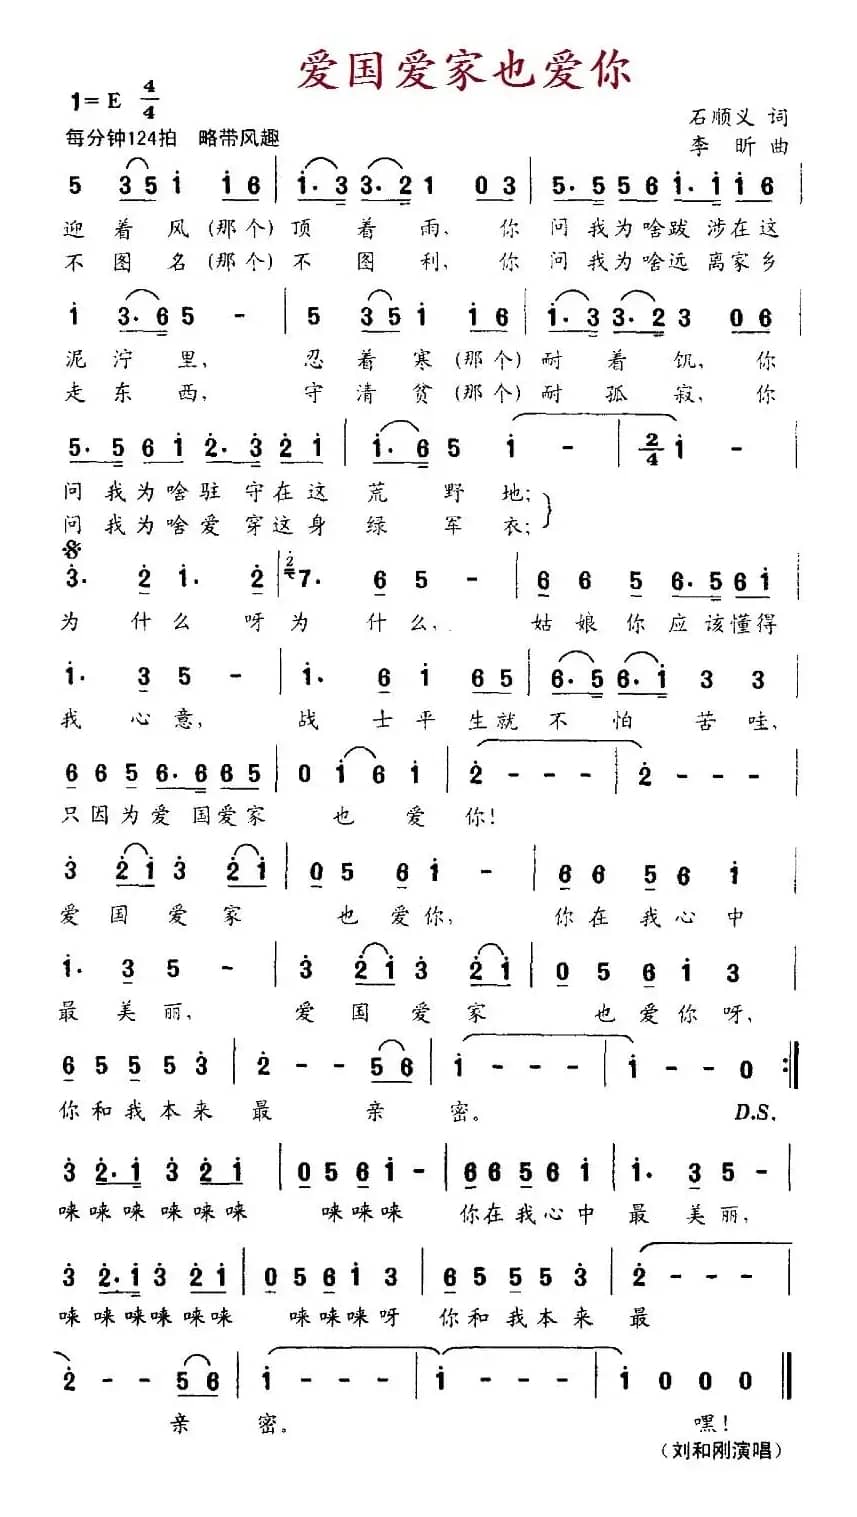 爱国爱家也爱你
1=E 4/4
石顺义 词
每分钟124拍 略带风趣
李昕曲
5 3 5 i i 6 | i. 3 3. 2 1 0 3 | 5. 5 5 6 i. i i 6
迎着风(那个)顶着雨,你问我为啥跋涉在这
不图名(那个)不图利,你问我为啥远离家乡
i 3. 6 5 - | 5 3 5 i i 6 | i. 3 3. 2 3 0 6
泥泞里,忍着寒(那个)耐着饥,你
走东西,守清贫(那个)耐孤寂,你
5. 5 6 i 2. 3 2 i | i. 6 5 i - | 2/4 i -
问我为啥驻守在这荒野地;
问我为啥爱穿这身绿军衣;
3. 2 i. 2 | 2 7. 6 5 - | 6 6 5 6. 5 6 i
为什么呀为什么,姑娘你应该懂得
i. 3 5 - | i. 6 i 6 5 | 6. 5 6. i 3 3
我心意,战士平生就不怕苦哇,
6 6 5 6. 6 6 5 | 0 i 6 i | 2 - - - | 2 - - -
只因为爱国爱家也爱你!
3 2 i 3 2 i | 0 5 6 i - | 6 6 5 6 i
爱国爱家也爱你,你在我心中
i. 3 5 - | 3 2 i 3 2 i | 0 5 6 i 3
最美丽,爱国爱家也爱你呀,
6 5 5 5 3 | 2 - - 5 6 | i - - - | i - 0 :||
你和我本来最亲密。 D.S.
3 2. i 3 2 i | 0 5 6 i - | 6 6 5 6 i | i. 3 5 -
唻唻唻唻唻唻 唻唻唻 你在我心中最美丽,
3 2. i 3 2 i | 0 5 6 i 3 | 6 5 5 5 3 | 2 - - -
唻唻唻唻唻唻 唻唻唻呀 你和我本来最
2 - - 5 6 | i - - - | i - - - | i 0 0 0 ||
亲密。 嘿!
(刘和刚演唱)